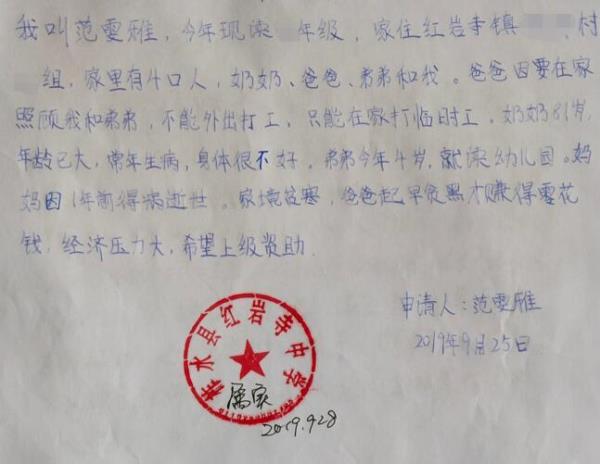 我叫范雯雅，今年现读 年级，家住红岩寺镇 村
组，家里有4口人，奶奶、爸爸、弟弟和我。爸爸因要在家
照顾我和弟弟，不能外出打工，只能在家打临时工，奶奶81岁，
年龄已大，常年生病，身体很不好，弟弟今年4岁，就读幼儿园。妈
妈因1年前得病逝世。家境贫寒，爸爸起早贪黑才赚得零花
钱，经济压力大，希望上级资助.
申请人：范雯雅
2019年9月25日
柞水县红岩寺中学
属实
2019.9.28